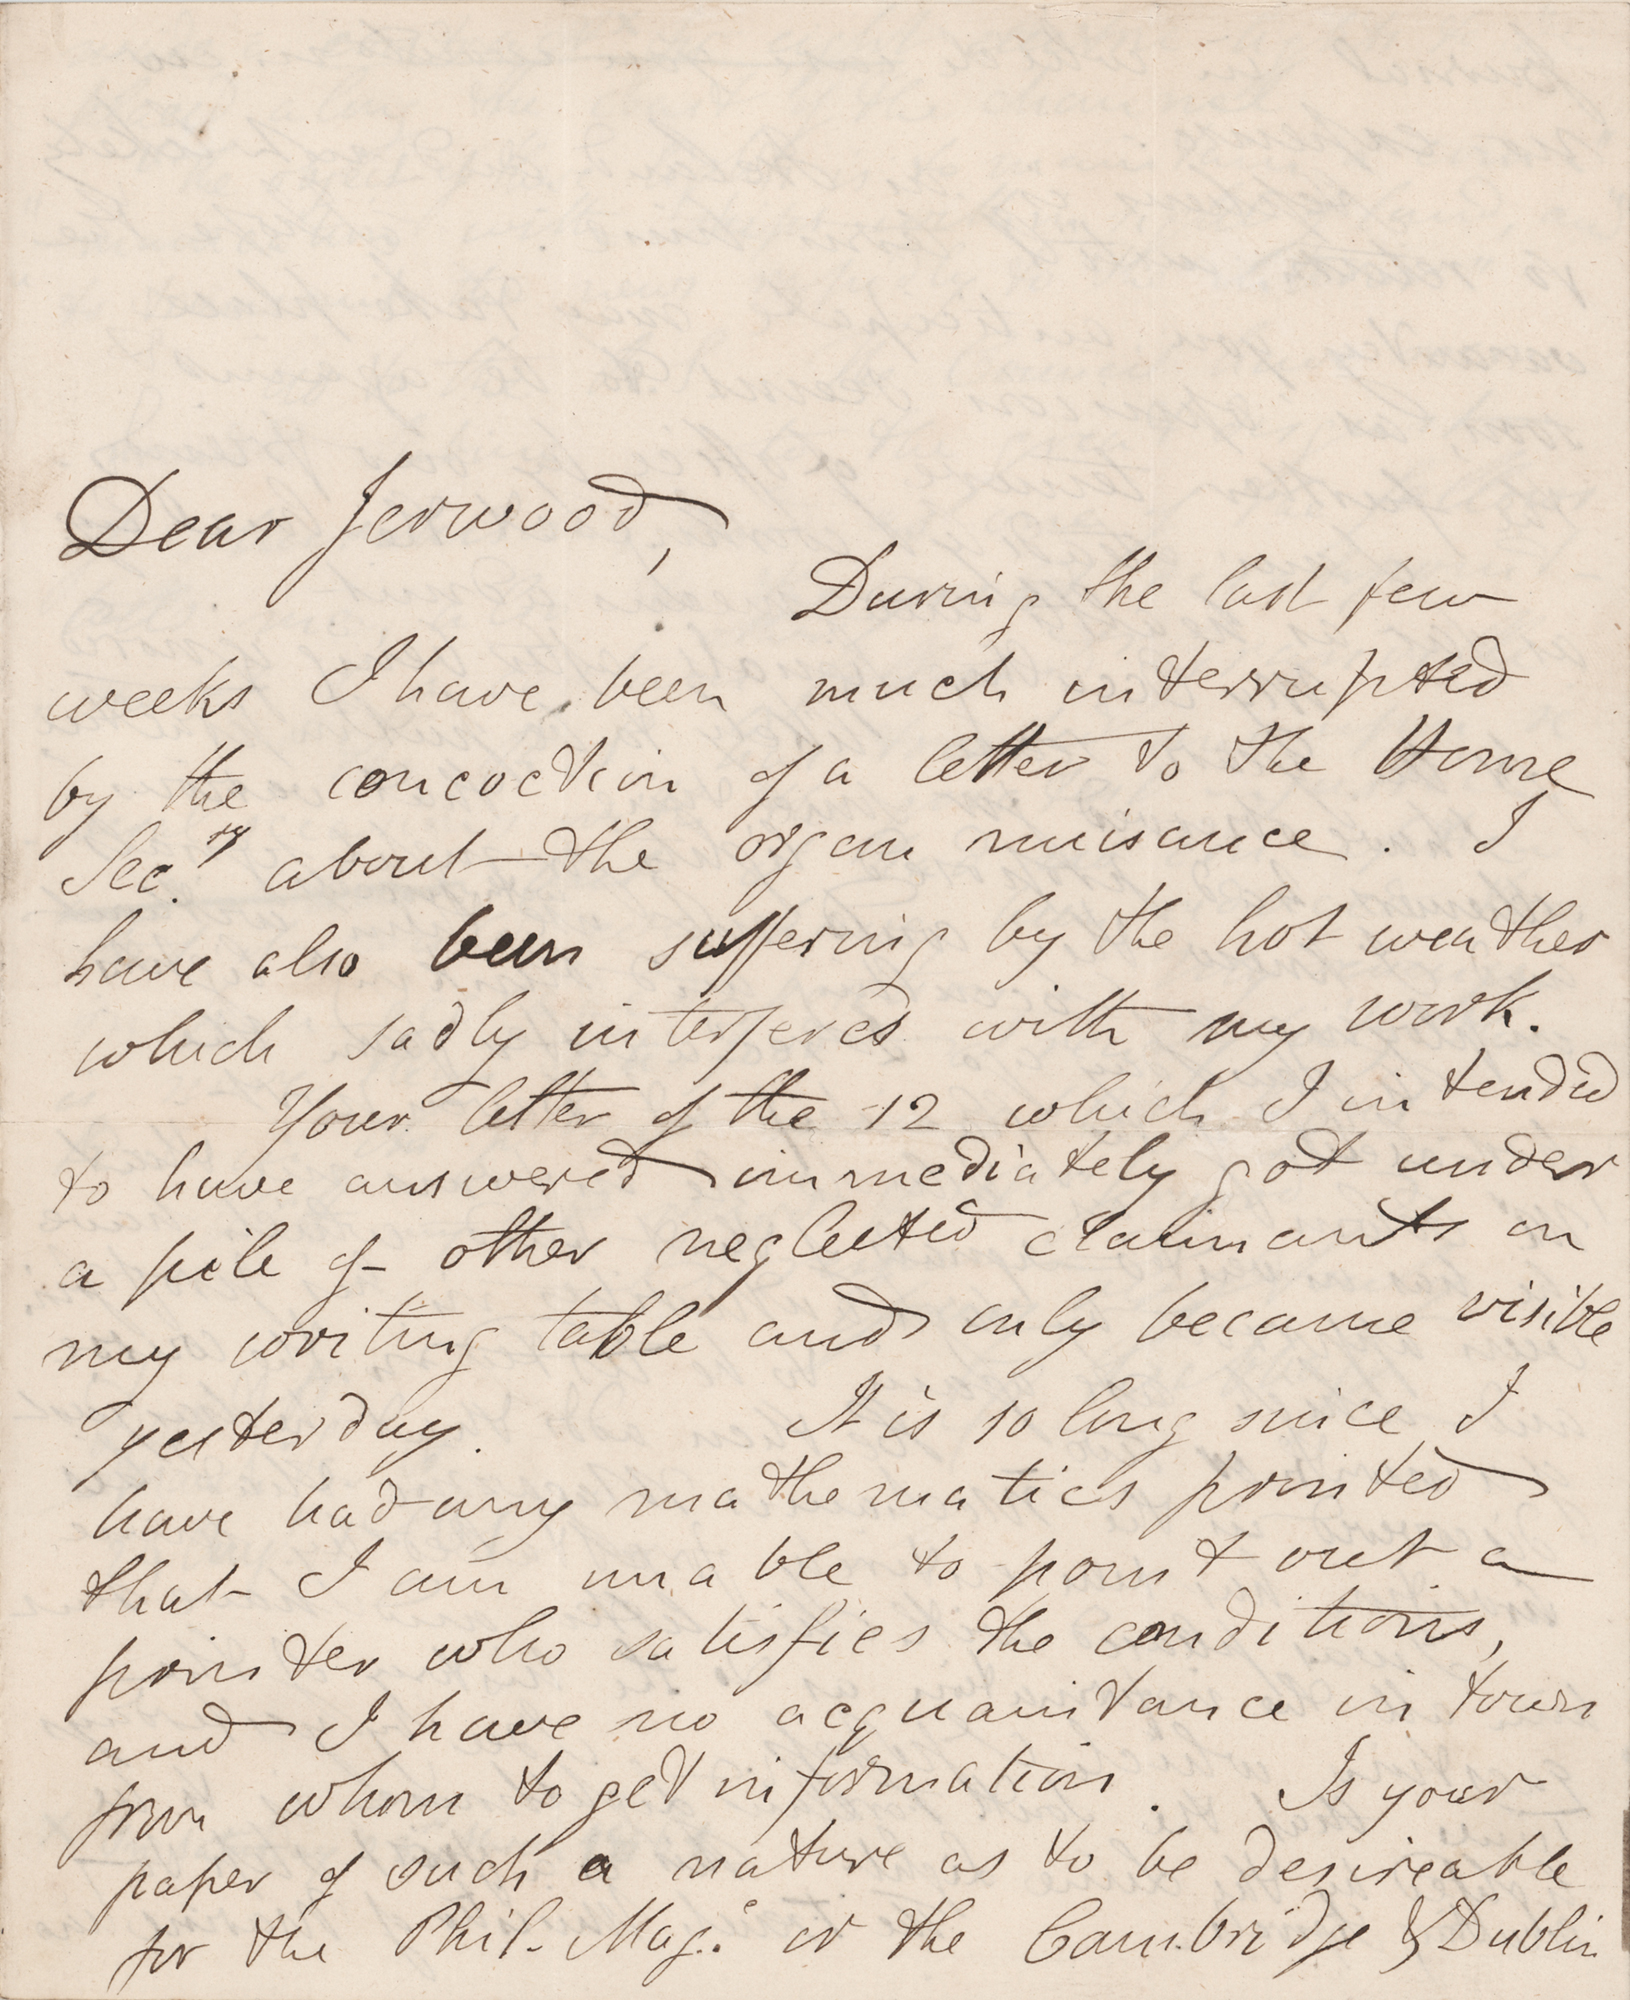 Dear Jerwood,
During the last few
weeks I have been much interrupted
by the concoction of a letter to the Home
Sec.ry about the organ nuisance. I
have also been suffering by the hot weather
which sadly interferes with my work.
Your letter of the 12 which I intended
to have answered immediately got under
a pile of other neglected claimants on
my writing table and only became visible
yesterday. It is so long since I
have had any mathematics printed
that I am unable to point out a
printer who satisfies the conditions,
and I have no acquaintance in town
from whom to get information. Is your
paper of such a nature as to be desireable
for the Phil. Mag.e or the Cambridge & Dublin